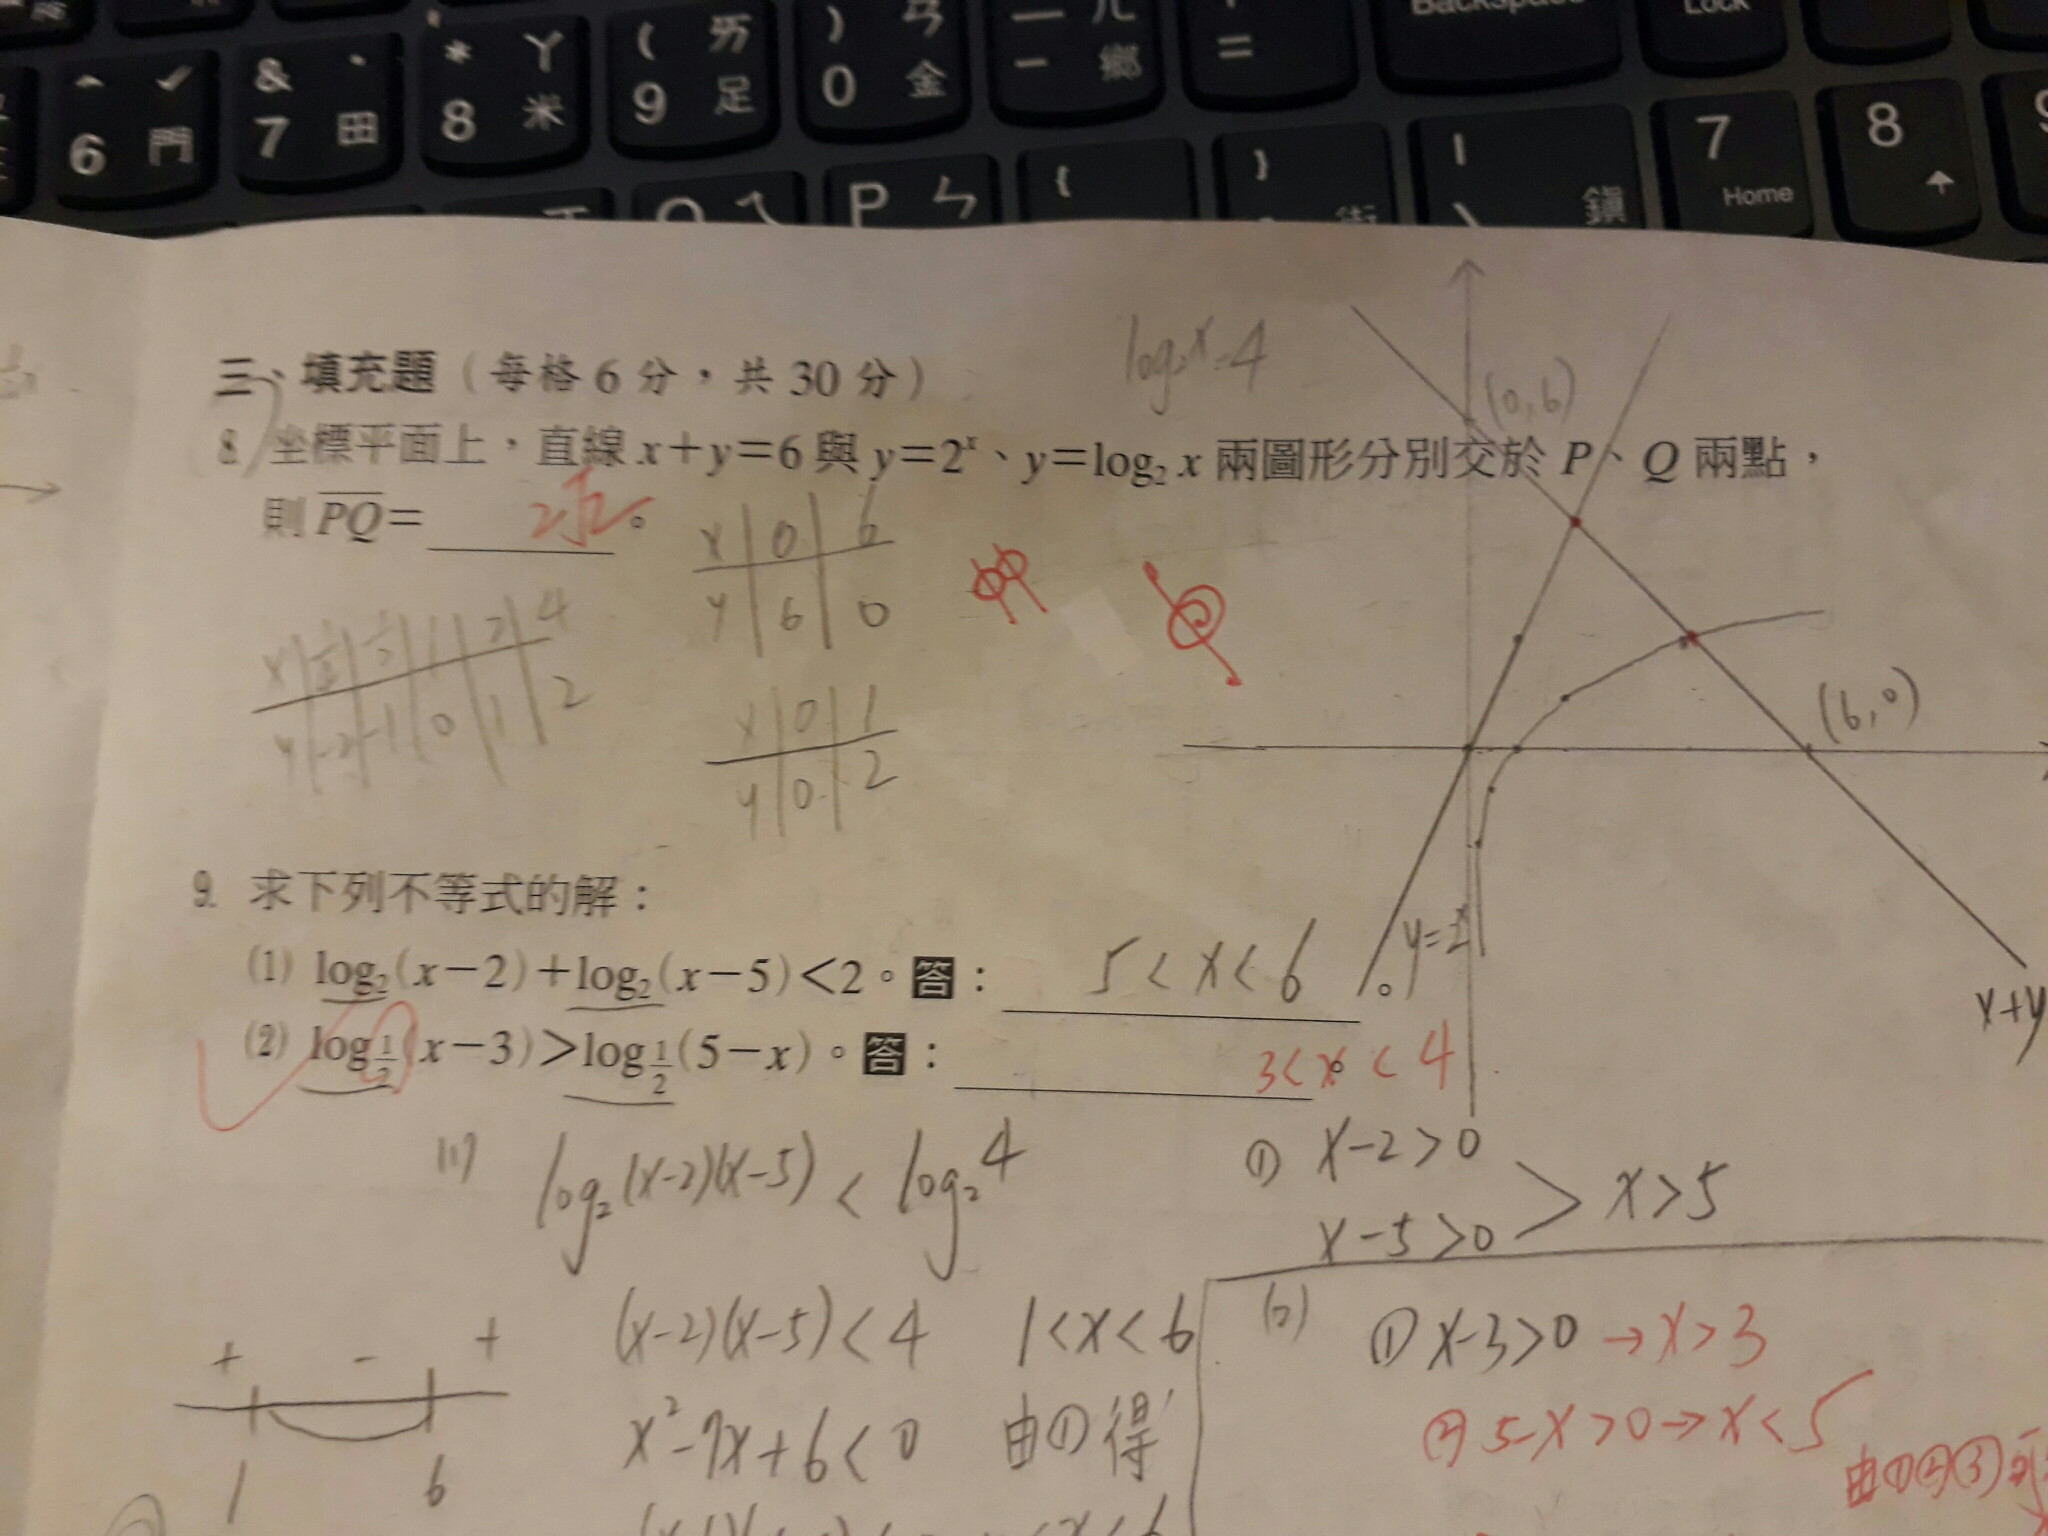 ^ 6 門
& 7 田
* 8 ㄚ 米
( 9 ㄞ 足
) 0 ㄢ 金
— - ㄦ 鄉
+ =
Backspace
Lock
P ㄣ
{
}
| \ 鎮
7 Home
8
log₂x=4
三、填充題（每格 6 分，共 30 分）
(0,6)
8. 坐標平面上，直線 x+y=6 與 y=2ˣ、y=log₂ x 兩圖形分別交於 P、Q 兩點，
則 PQ= 2√2 。
x 0 6
y 6 0
x 1 2 4
y -2 -1 0 1 2
x 0 1
y 0 2
(6,0)
9. 求下列不等式的解：
(1) log₂(x−2)+log₂(x−5)<2。答： 5<x<6 。
y=2ˣ
x+y
(2) log½(x−3)>log½(5−x)。答： 3<x<4 。
(1) log₂(x-2)(x-5) < log₂4
① x-2>0
x-5>0 > x>5
(x-2)(x-5)<4 1<x<6
+ - +
1 6
x²-7x+6<0 由①得
(2) ① x-3>0 → x>3
② 5-x>0 → x<5
由①②③